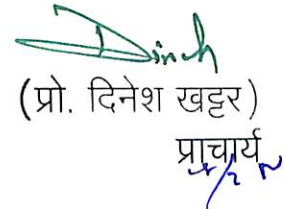 Dinesh
(प्रो. दिनेश खट्टर)
प्राचार्य